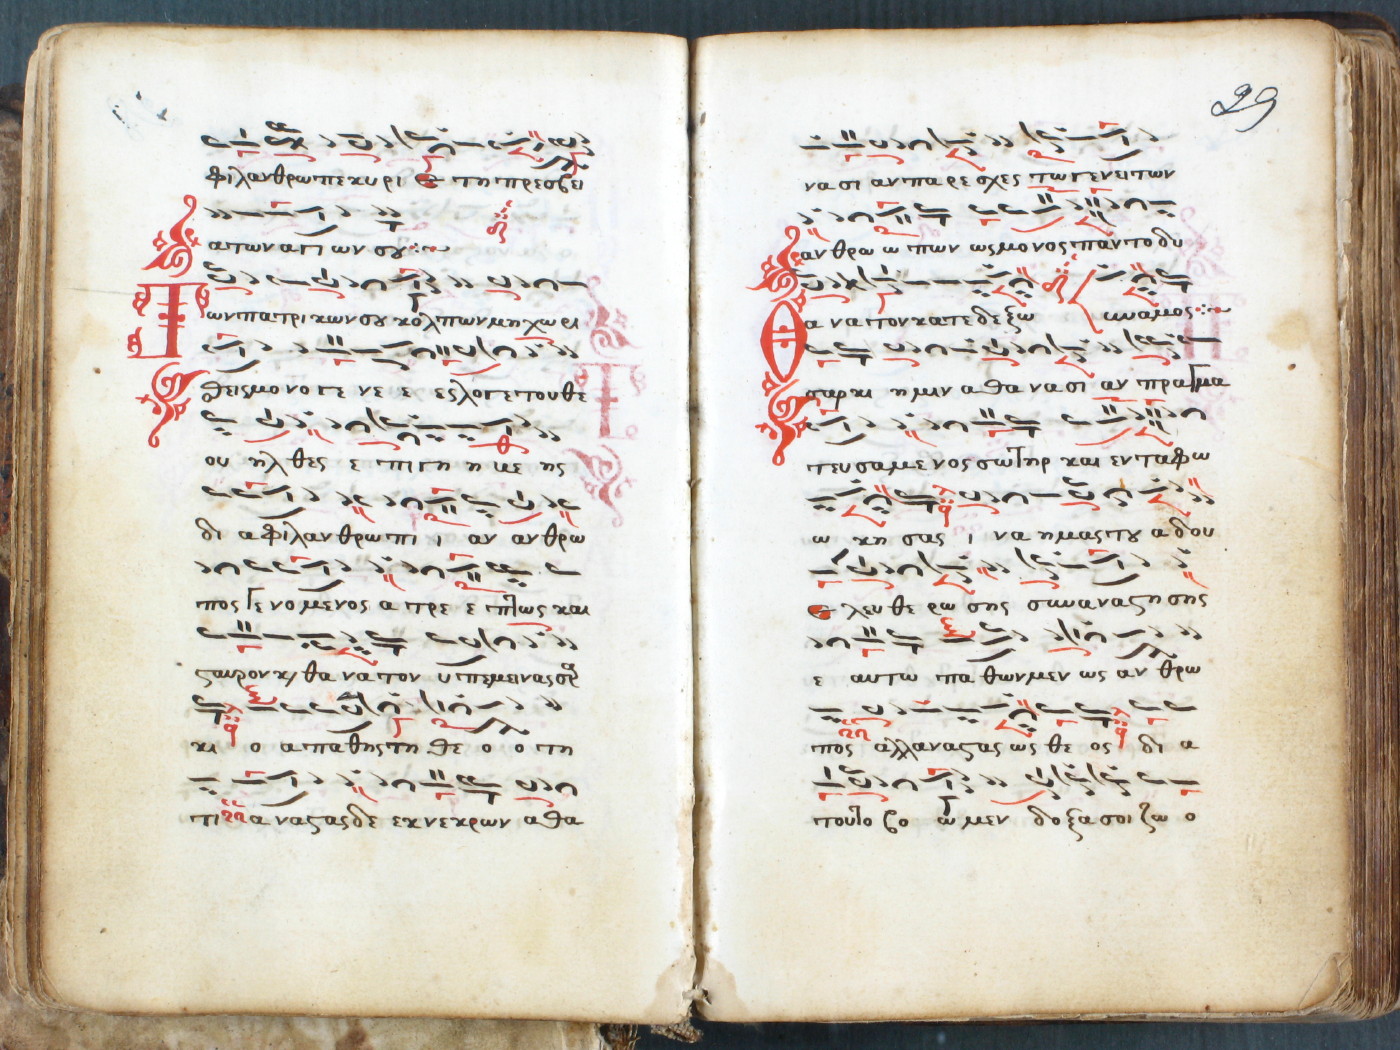 φιλανθρωπε κυρι ε τη πρεσβει
αι των αγι ων σου
Των πατρικων σου κολπων μη χωρι
θεις μονογε νε ε ες λογε του θε
ου ηλθες ε πι γη η με ης
δι α φιλανθρωπι ι αν ανθρω
πος γενομενος ατρε ε πτως και
σταυρον κ θα να τον υπεμεινας σαρ
κι ο απαθης τη θε ο ο τη
τι αναστας δε εκ νεκρων αθα
29
να σι αν παρεσχες τω γενει των
ανθρω ω πων ως μονος παντοδυ
να μος
Θα να τον κατεδεξω
σαρκι ημιν αθανασι αν πραγμα
τευσαμενος σωτηρ και εν ταφω
ω κη σας ι να ημας του αδου
ε λευθερωσης συναναστησης
ε αυτω παθων μεν ως ανθρω
πος αλλ αναστας ως θε ος δι α
τουτο βο ω μεν δοξα σοι ζω ο